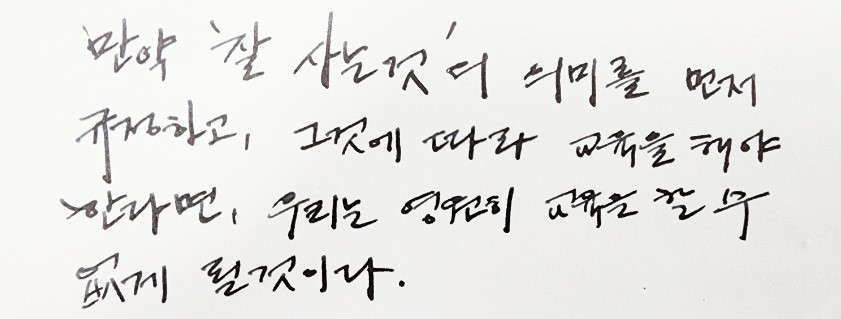 만약 '잘 사는것'의 의미를 먼저
규정하고, 그것에 따라 교육을 해야
한다면, 우리는 영원히 교육은 할 수
없게 될것이다.